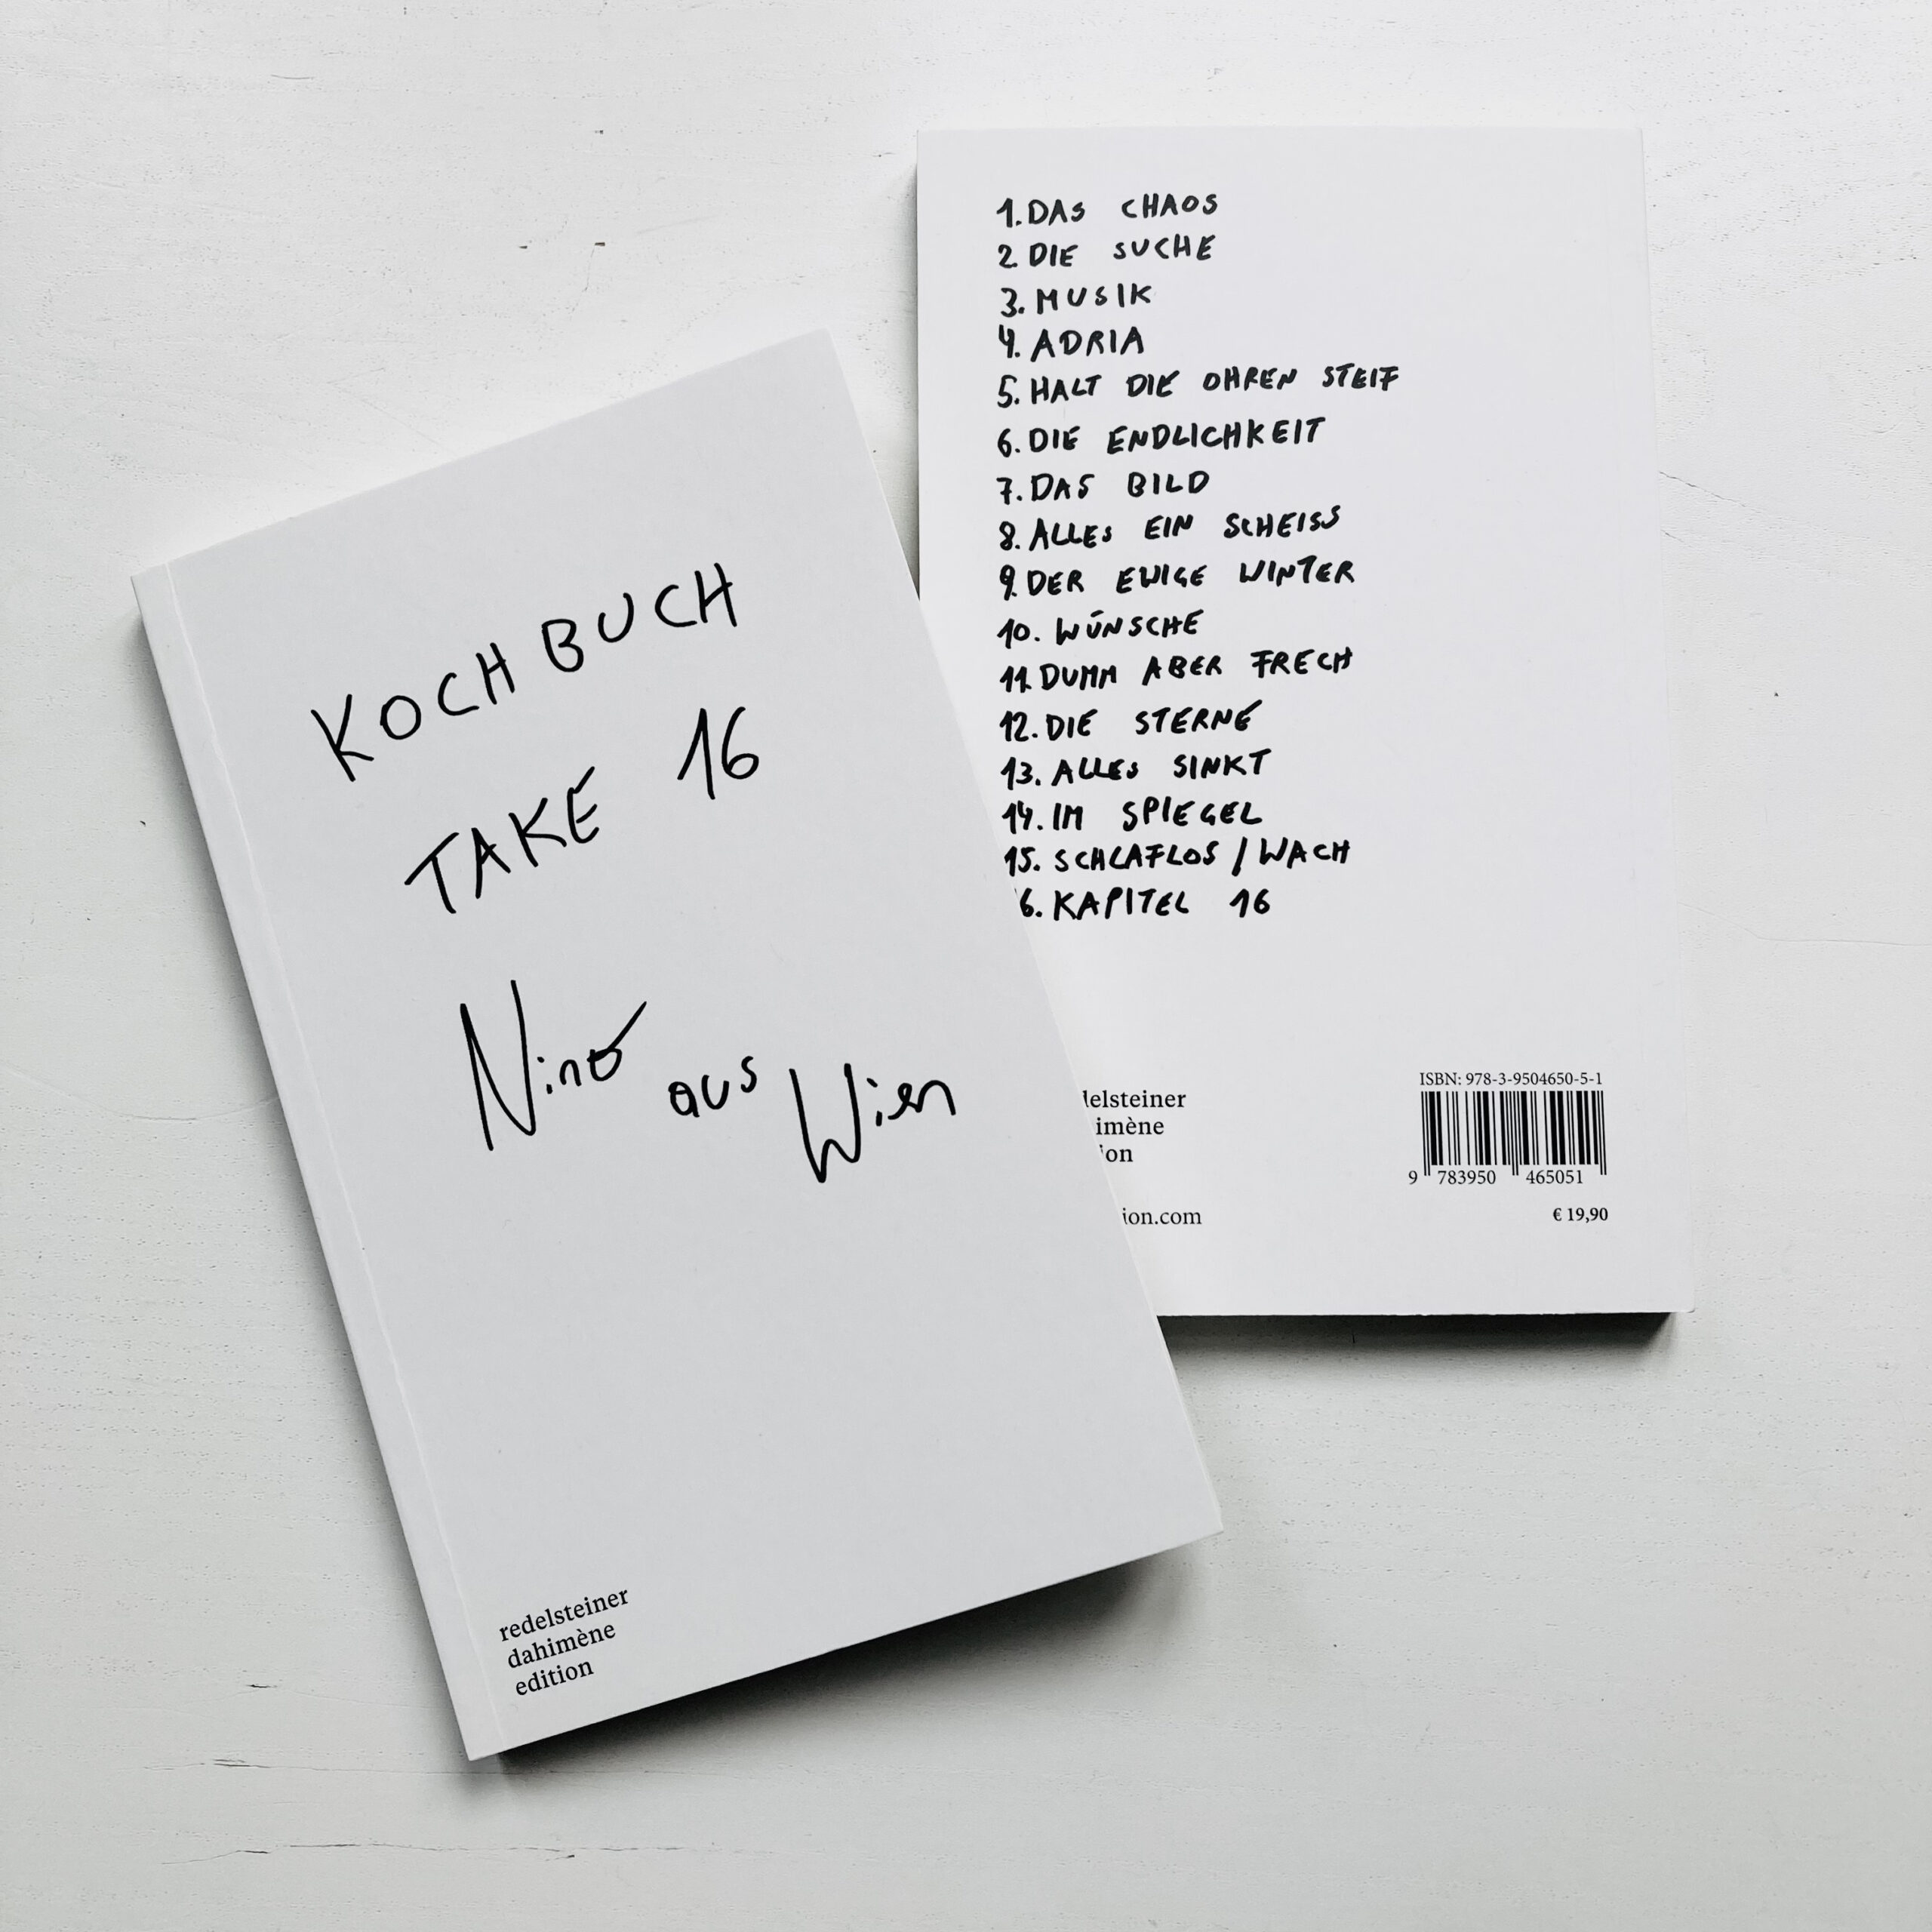 KOCHBUCH
TAKE 16
Nino aus Wien
redelsteiner
dahimène
edition
1. DAS CHAOS
2. DIE SUCHE
3. MUSIK
4. ADRIA
5. HALT DIE OHREN STEIF
6. DIE ENDLICHKEIT
7. DAS BILD
8. ALLES EIN SCHEISS
9. DER EWIGE WINTER
10. WÜNSCHE
11. DUMM ABER FRECH
12. DIE STERNE
13. ALLES SINKT
14. IM SPIEGEL
15. SCHLAFLOS / WACH
6. KAPITEL 16
delsteiner
imène
ion
ion.com
ISBN: 978-3-9504650-5-1
9 783950 465051
€ 19,90